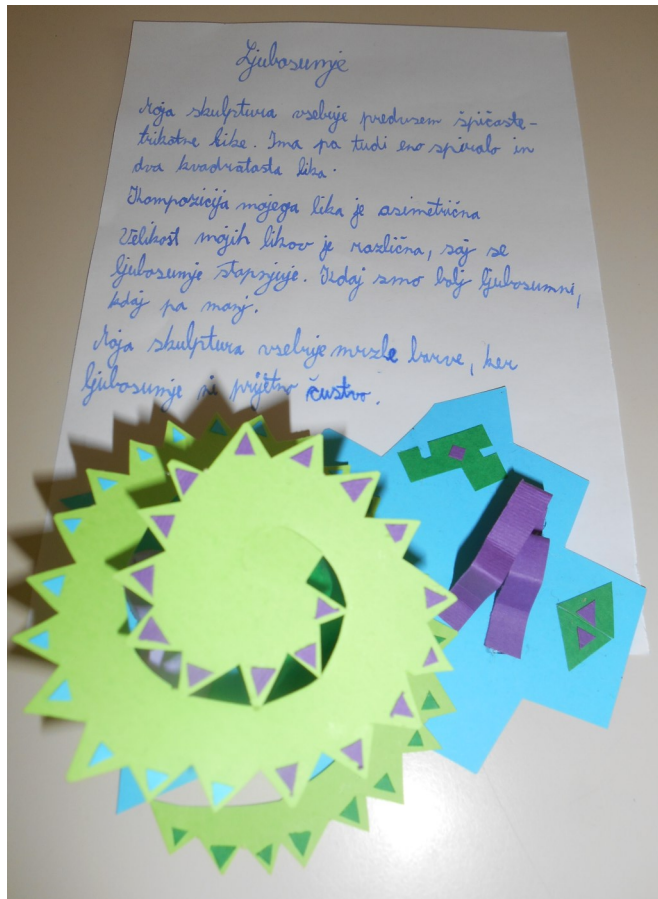 Ljubosumje
Moja skulptura vsebuje predvsem špičaste-
trikotne like. Ima pa tudi eno spiralo in
dva kvadratasta lika.
Kompozicija mojega lika je asimetrična
Velikost mojih likov je različna, saj se
ljubosumje stopnjuje. Kdaj smo bolj ljubosumni,
kdaj pa manj.
Moja skulptura vsebuje mrzle barve, ker
ljubosumje ni prijetno čustvo.